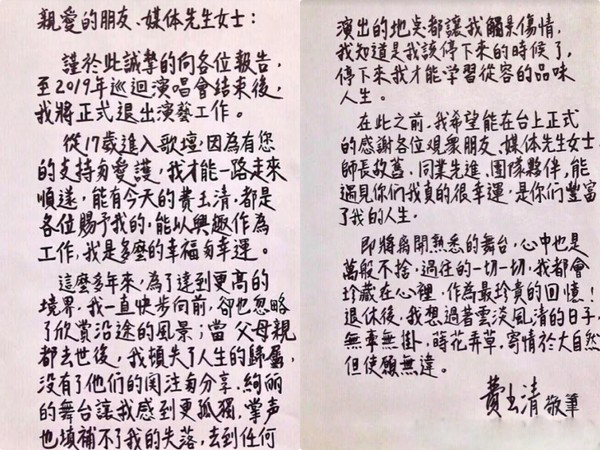 親愛的朋友、媒体先生女士：
謹於此誠摯的向各位報告，
至2019年巡迴演唱會結束後，
我將正式退出演藝工作。
從17歲進入歌壇，因為有您
的支持与愛護，我才能一路走來
順遂，能有今天的費玉清，都是
各位賜予我的，能以興趣作為
工作，我是多麼的幸福与幸運。
這麼多年來，為了達到更高的
境界，我一直快步向前，卻也忽略
了欣賞沿途的風景；當父母親
都去世後，我頓失了人生的歸屬，
沒有了他們的関注与分享，絢麗
的舞台讓我感到更孤獨，掌声
也填補不了我的失落，去到任何
演出的地点都讓我觸景傷情，
我知道是我該停下來的時候了，
停下來我才能學習從容的品味
人生。
在此之前，我希望能在台上正式
的感謝各位觀衆朋友、媒体先生女士、
師長故舊、同業先進、團隊夥伴，能
遇見你们我真的很幸運，是你们豐富
了我的人生。
即將離開熟悉的舞台，心中也是
萬般不捨，過往的一切一切，我都會
珍藏在心裡，作為最珍貴的回憶！
退休後，我想過著雲淡風清的日子，
無牽無掛，蒔花弄草，寄情於大自然，
但使願無違。
費玉清 敬筆